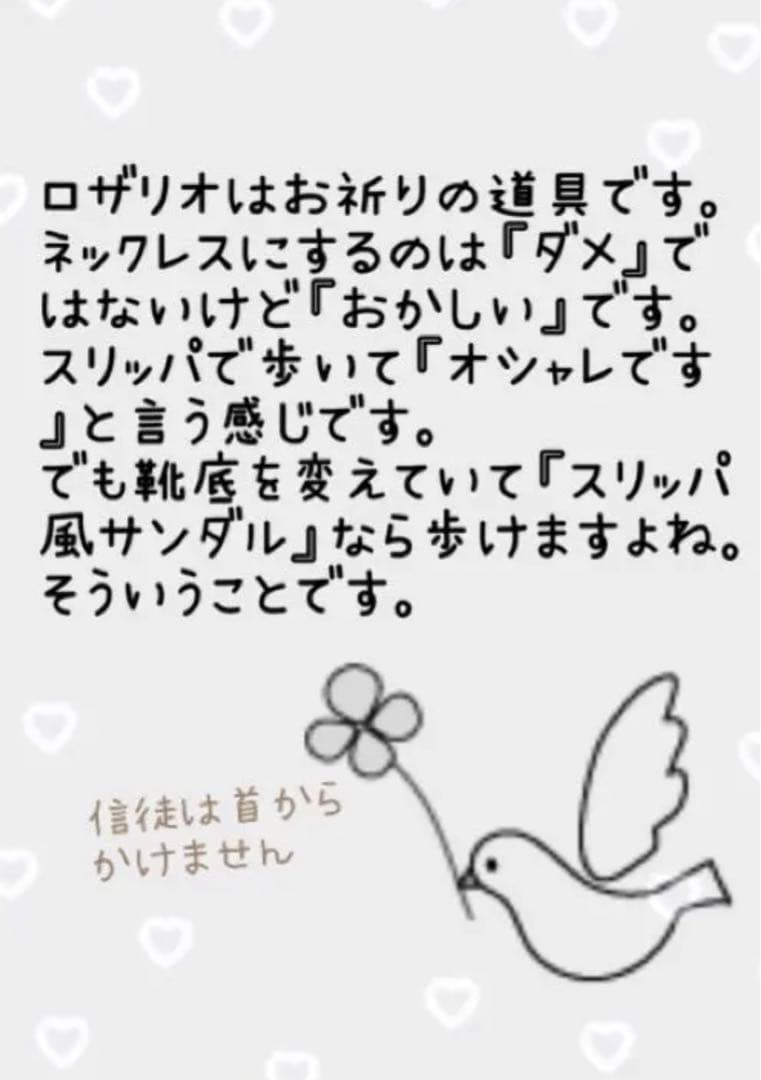 ロザリオはお祈りの道具です。
ネックレスにするのは『ダメ』で
はないけど『おかしい』です。
スリッパで歩いて『オシャレです
』と言う感じです。
でも靴底を変えていて『スリッパ
風サンダル』なら歩けますよね。
そういうことです。
信徒は首から
かけません